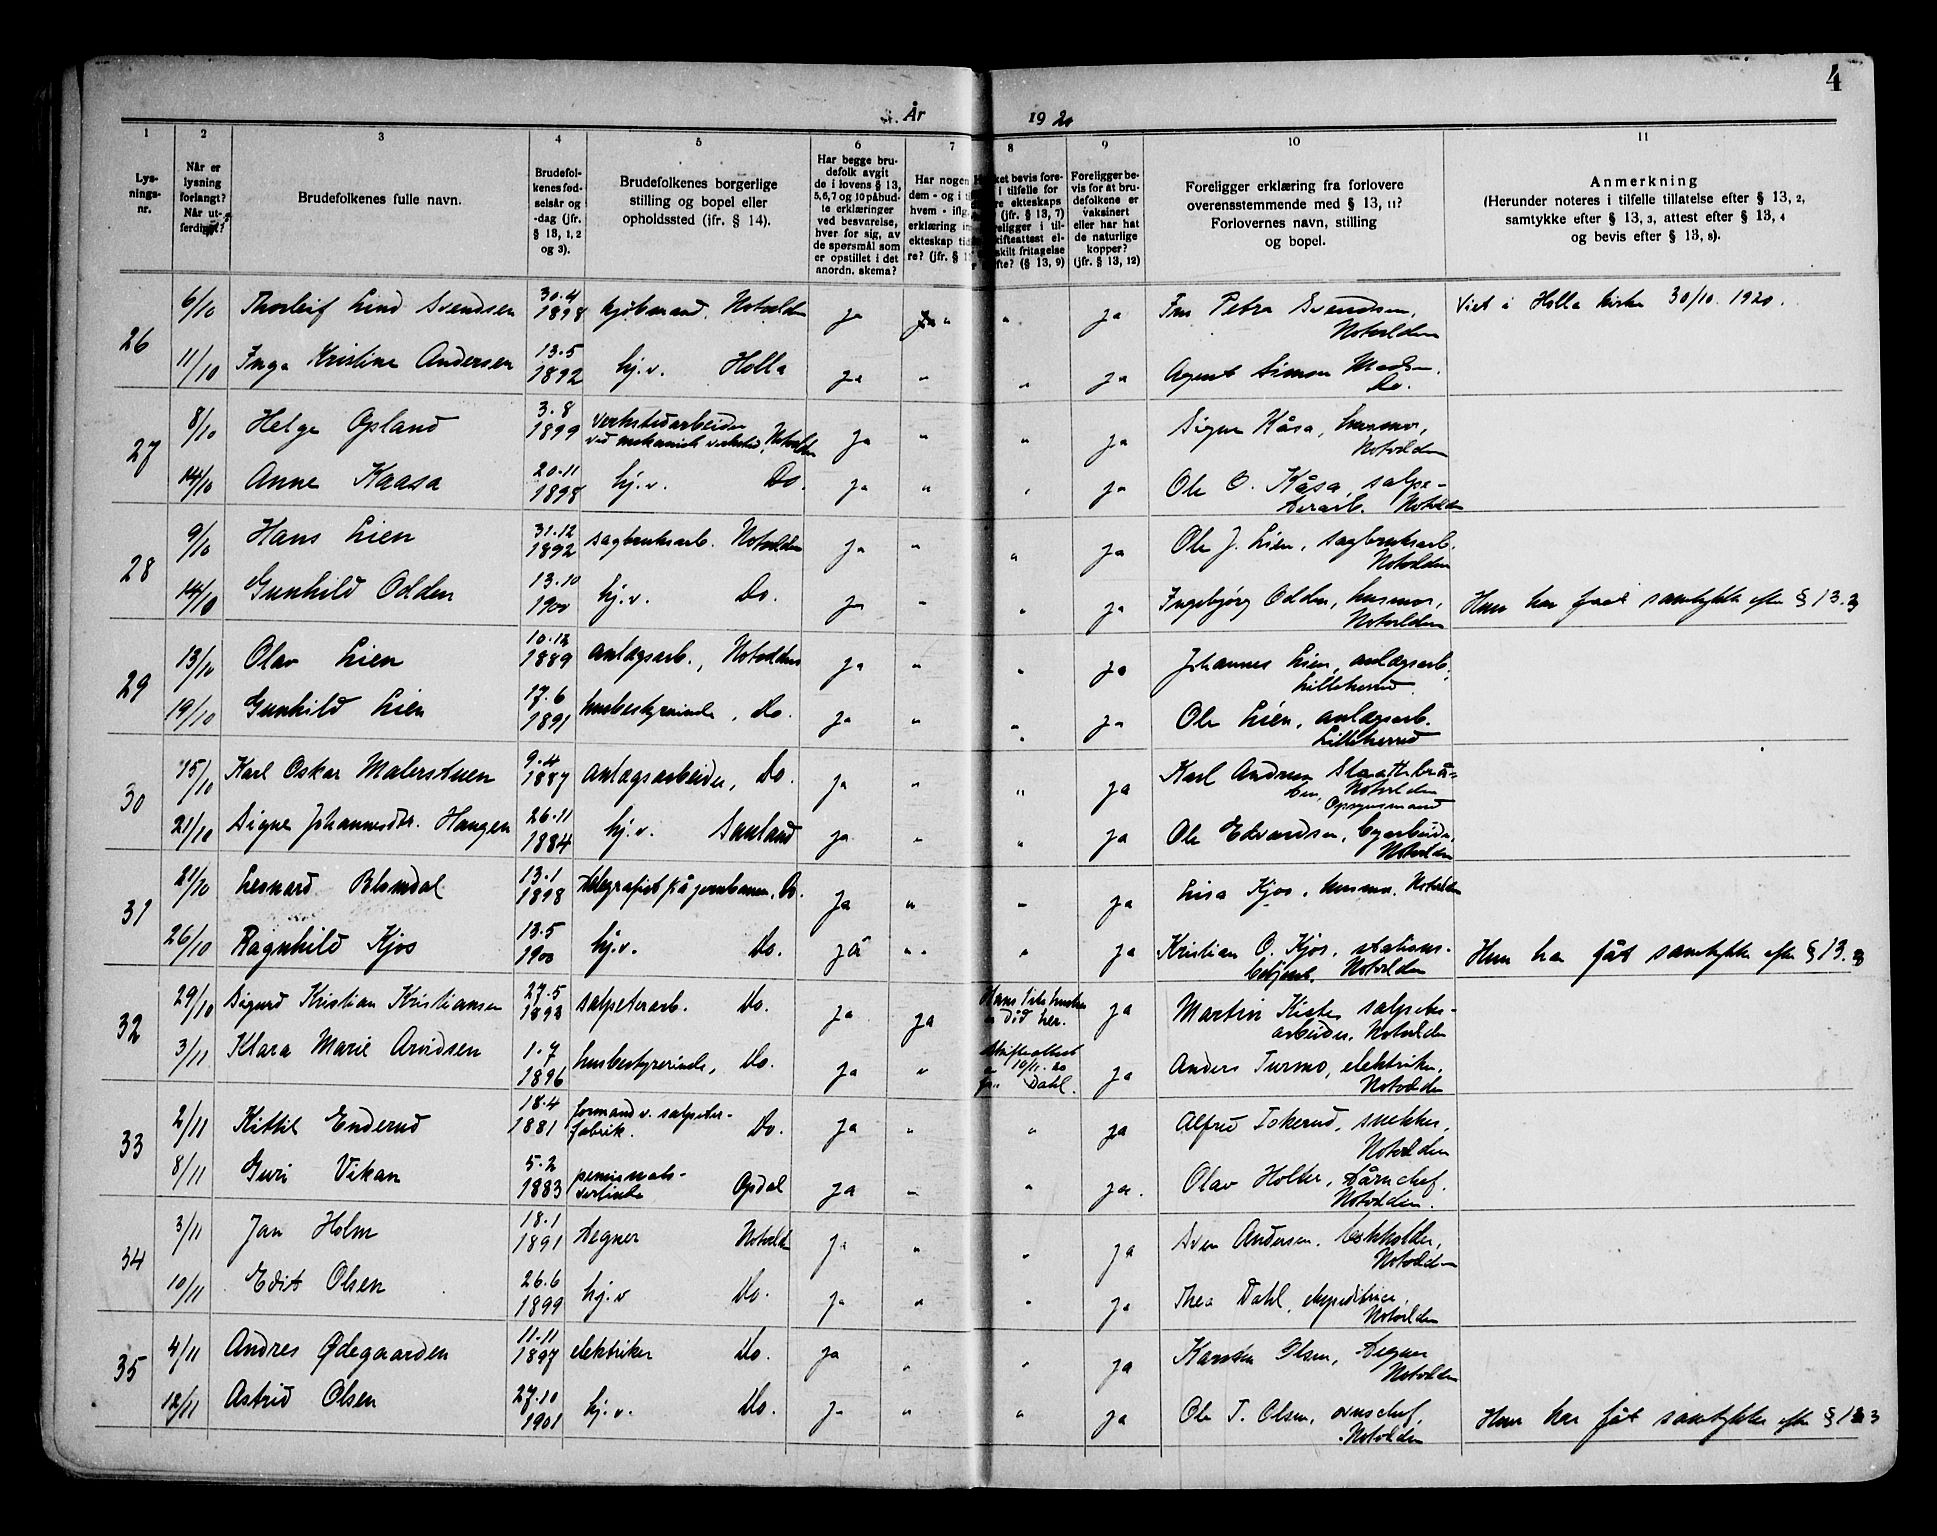 4
År 1920
1
2
3
4
5
6
7
8
9
10
11
Lys-
nings-
nr.
Når er
lysning
forlangt?
Når ut-
ferdiget?
Brudefolkenes fulle navn.
Brudefol-
kenes fød-
selsår og
-dag (jfr.
§ 13, 1, 2
og 3).
Brudefolkenes borgerlige
stilling og bopel eller
opholdssted (ifr. § 14).
Har begge bru-
defolk avgit
de i lovens § 13,
5, 6, 7 og 10 påbud-
te erklæringer
ved besvarelse,
hver for sig, av
de spørsmål som
er opstillet i det
anordn. skema?
Har nogen
dem - og i ti
hvem - iflg.
erklæring in
ekteskap tid
re? (jfr. § 1
ket bevis fore-
i tilfelle for
re ekteskaps
(jfr. § 13, 7)
religger i til-
kifteattest el-
skilt fritagelse
fte? (§ 13, 9)
Foreligger be-
vis for at bru-
defolkene er
vaksinert
eller har hat
de naturlige
kopper?
(jfr. § 13, 12)
Foreligger erklæring fra forlovere
overensstemmende med § 13, 11?
Forlovernes navn, stilling
og bopel.
Anmerkning
(Herunder noteres i tilfelle tillatelse efter § 13, 2,
samtykke efter § 13, 3, attest efter § 13, 4
og bevis efter § 13, 8).
26
6/10 Thorleif Lind Svendsen 30.4 1898 kjøbmand, Notodden ja " " ja Fru Petra Svendsen, Notodden Viet i Holla kirke 30/10. 1920.
11/10 Inga Kristine Andersen 13.5 1892 hj.v. Holla ja " " ja Agent Simon Madsen. Do.
27
8/10 Helge Opland 3.8 1899 verkstedarbeider ved mekanisk verksted, Notodden ja " " ja Signe Kåsa, husmor, Notodden
14/10 Anne Kaasa 20.11 1898 hj.v. Do. ja " " ja Ole O. Kåsa, salpe- terarb. Notodden
28
9/10 Hans Lien 31.12 1892 sagbruksarb. Notodden ja " " ja Ole J. Lien, sagbruksarb. Notodden
14/10 Gunhild Odden 13.10 1900 hj.v. Do. ja " " ja Ingebjørg Odden, husmor, Notodden Hun har faat samtykke efter § 13.3
29
13/10 Olav Lien 10.12 1889 anlægsarb., Notodden ja " " ja Johannes Lien, anlægsarb., Lilleherred.
19/10 Gunhild Lien 17.6 1891 husbestyrerinde, Do. ja " " ja Ole Lien, anlægsarb. Lilleherred
30
15/10 Karl Oskar Malerstuen 9.4 1887 anlægsarbeider, Do. ja " " ja Karl Andreas Notodden Opsynsmand
21/10 Signe Johannesdtr. Haugen 26.11 1884 hj.v. Sauland ja " " ja Ole Edvardsen, byarbeider, Notodden
31
21/10 Leonard Blomdal 13.1 1898 telegrafist på jernbanen, Do. ja " " ja Lisa Kjos, husmor. Notodden
26/10 Ragnhild Kjos 13.5 1900 hj.v. Do. ja " " ja Kristian O. Kjos, stations- betjent. Notodden Hun har fåt samtykke efter § 13.3
32
29/10 Sigurd Kristian Kristiansen 27.5 1893 salpeterarb. Do. ja ja Hans hustru død her. ja Martin Kiste, salpeter- arbeider, Notodden
3/11 Klara Marie Arvidsen 1.7 1896 husbestyrerinde, Do. ja " Skifteattest 10/11.20 fra Dahl. ja Anders Turmo, elektriker, Notodden
33
2/11 Kittil Enderud 18.4 1881 formand v. salpeter- fabrik. Do. ja " " ja Alfred Iskerud, snekker, Notodden
8/11 Guri Vikan 5.2 1883 pensionats- vertinde Opdal ja " " ja. Olav Holter, tårnchef. Notodden.
34
3/11 Jan Holm 18.1 1891 tegner Notodden ja " " ja Sven Andersen, bokholder, Notodden
10/11 Edit Olsen 26.6 1899 hj.v Do. ja " " ja Thea Dahl, ekspeditrice, Notodden
35
4/11 Andres Ødegaarden 11.11 1897 elektriker Do. ja " " ja Karsten Olsen, tegner Notodden
12/11 Astrid Olsen 27.10 1901 hj.v. Do. ja " " ja Ole T. Olsen, ovnschef, Notodden Hun har fåt samtykke efter § 13.3